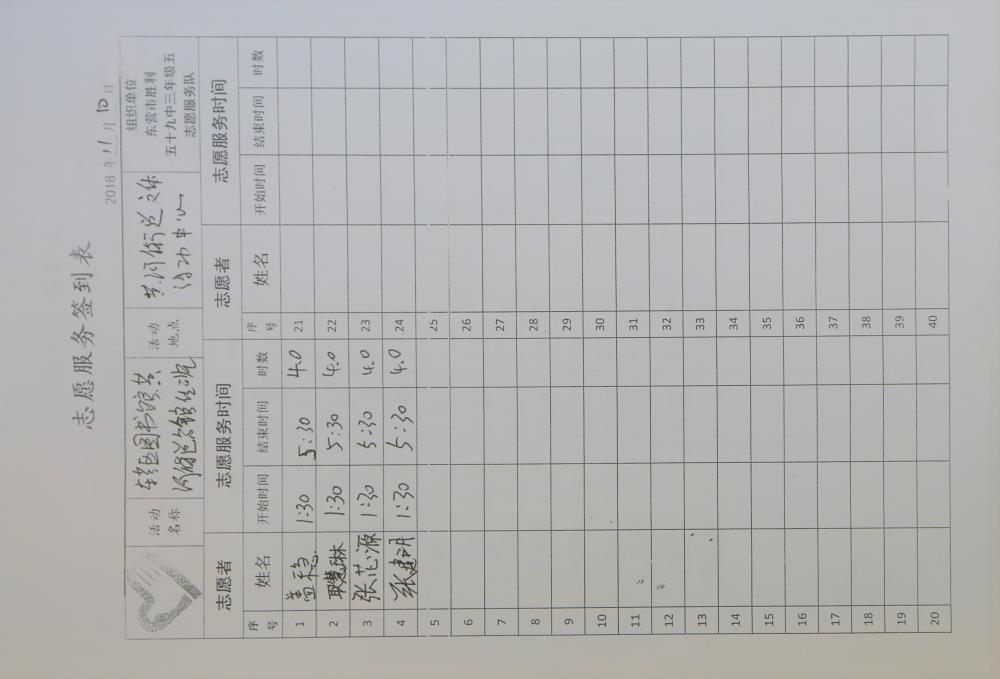 志愿服务签到表
2018 年 11 月 10 日
活动名称
东营区图书馆黄河街道分馆
活动地点
黄河街道文体活动中心
组织单位
东营市胜利五十九中三年级五志愿服务队
志愿者 志愿服务时间 志愿者 志愿服务时间
序号 姓名 开始时间 结束时间 时数 序号 姓名 开始时间 结束时间 时数
1 盖稳 1:30 5:30 4.0 21
2 耿慧琳 1:30 5:30 4.0 22
3 张芯源 1:30 5:30 4.0 23
4 张建明 1:30 5:30 4.0 24
5 25
6 26
7 27
8 28
9 29
10 30
11 31
12 32
13 33
14 34
15 35
16 36
17 37
18 38
19 39
20 40